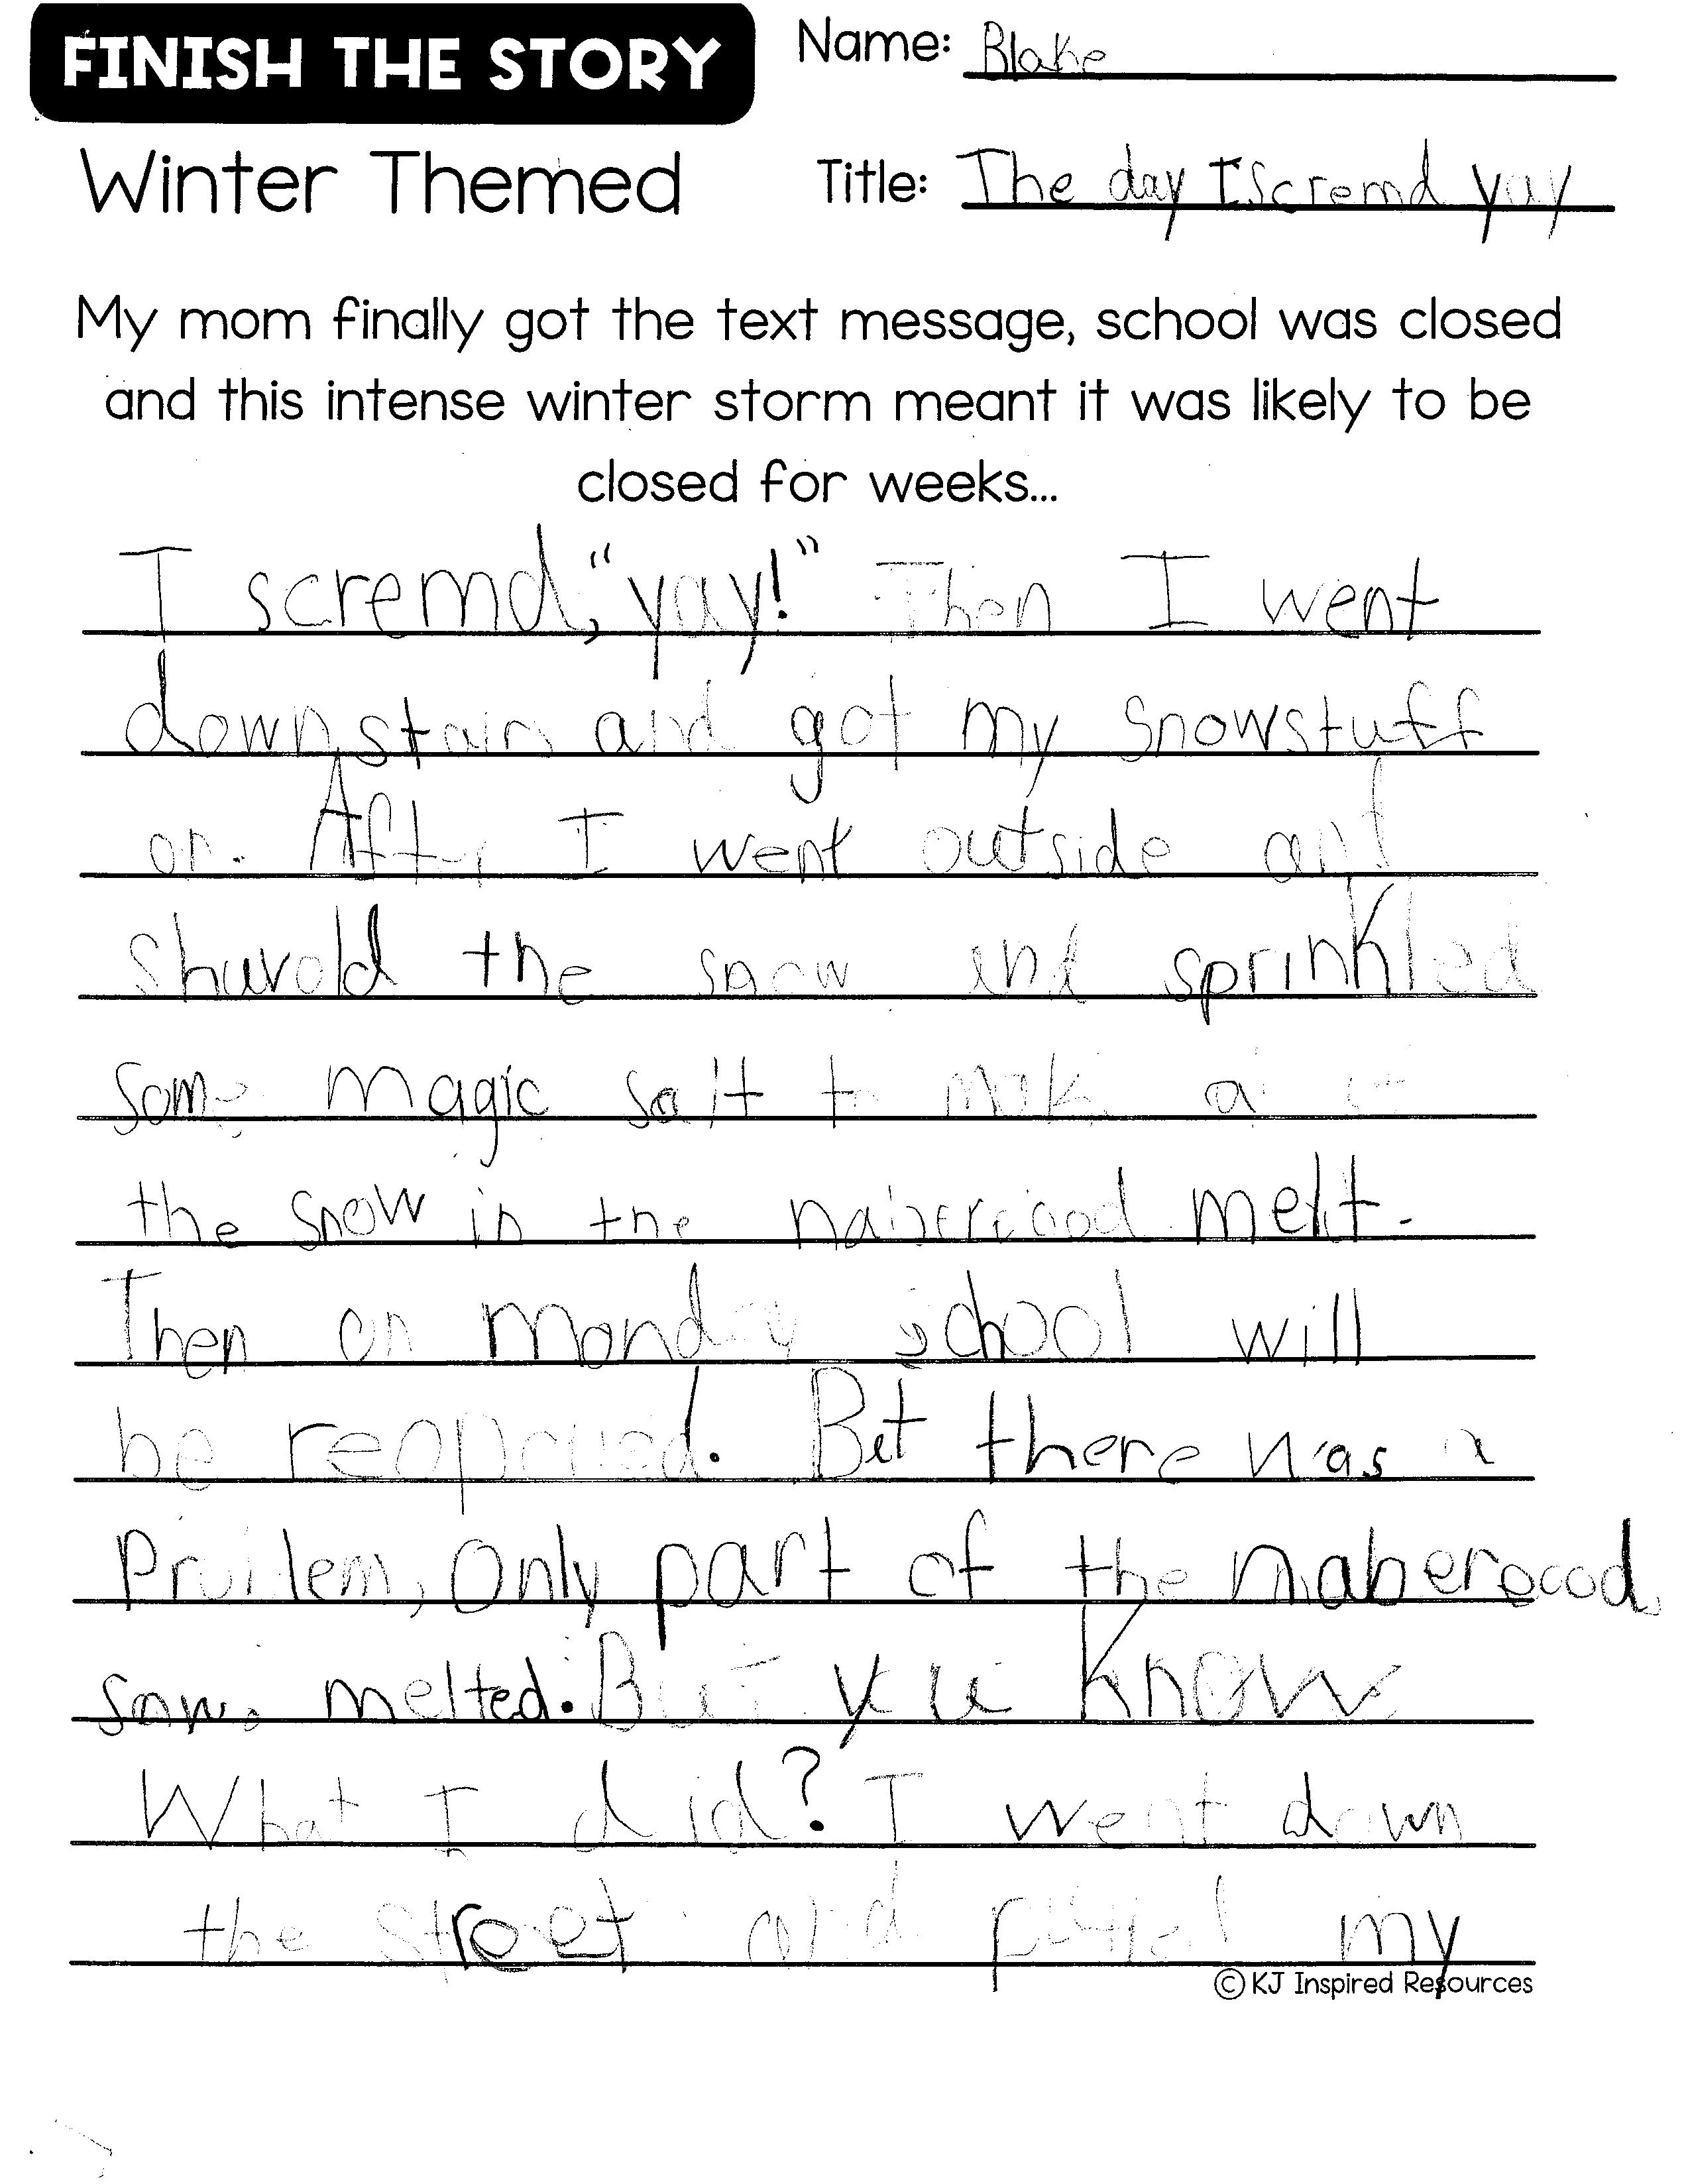 FINISH THE STORY
Name: Blake
Winter Themed
Title: The day I scremd yay
My mom finally got the text message, school was closed
and this intense winter storm meant it was likely to be
closed for weeks...
I scremd, "yay!" Then I went
downstairs and got my snowstuff
on. After I went outside and
shuvold the snow and sprinkled
some magic salt to make
the snow in the melt.
Then on monday school will
be reopened. But there was a
Problem, Only part of the naberhood
melted. But you Know
What I did? I went down
the street and my
© KJ Inspired Resources